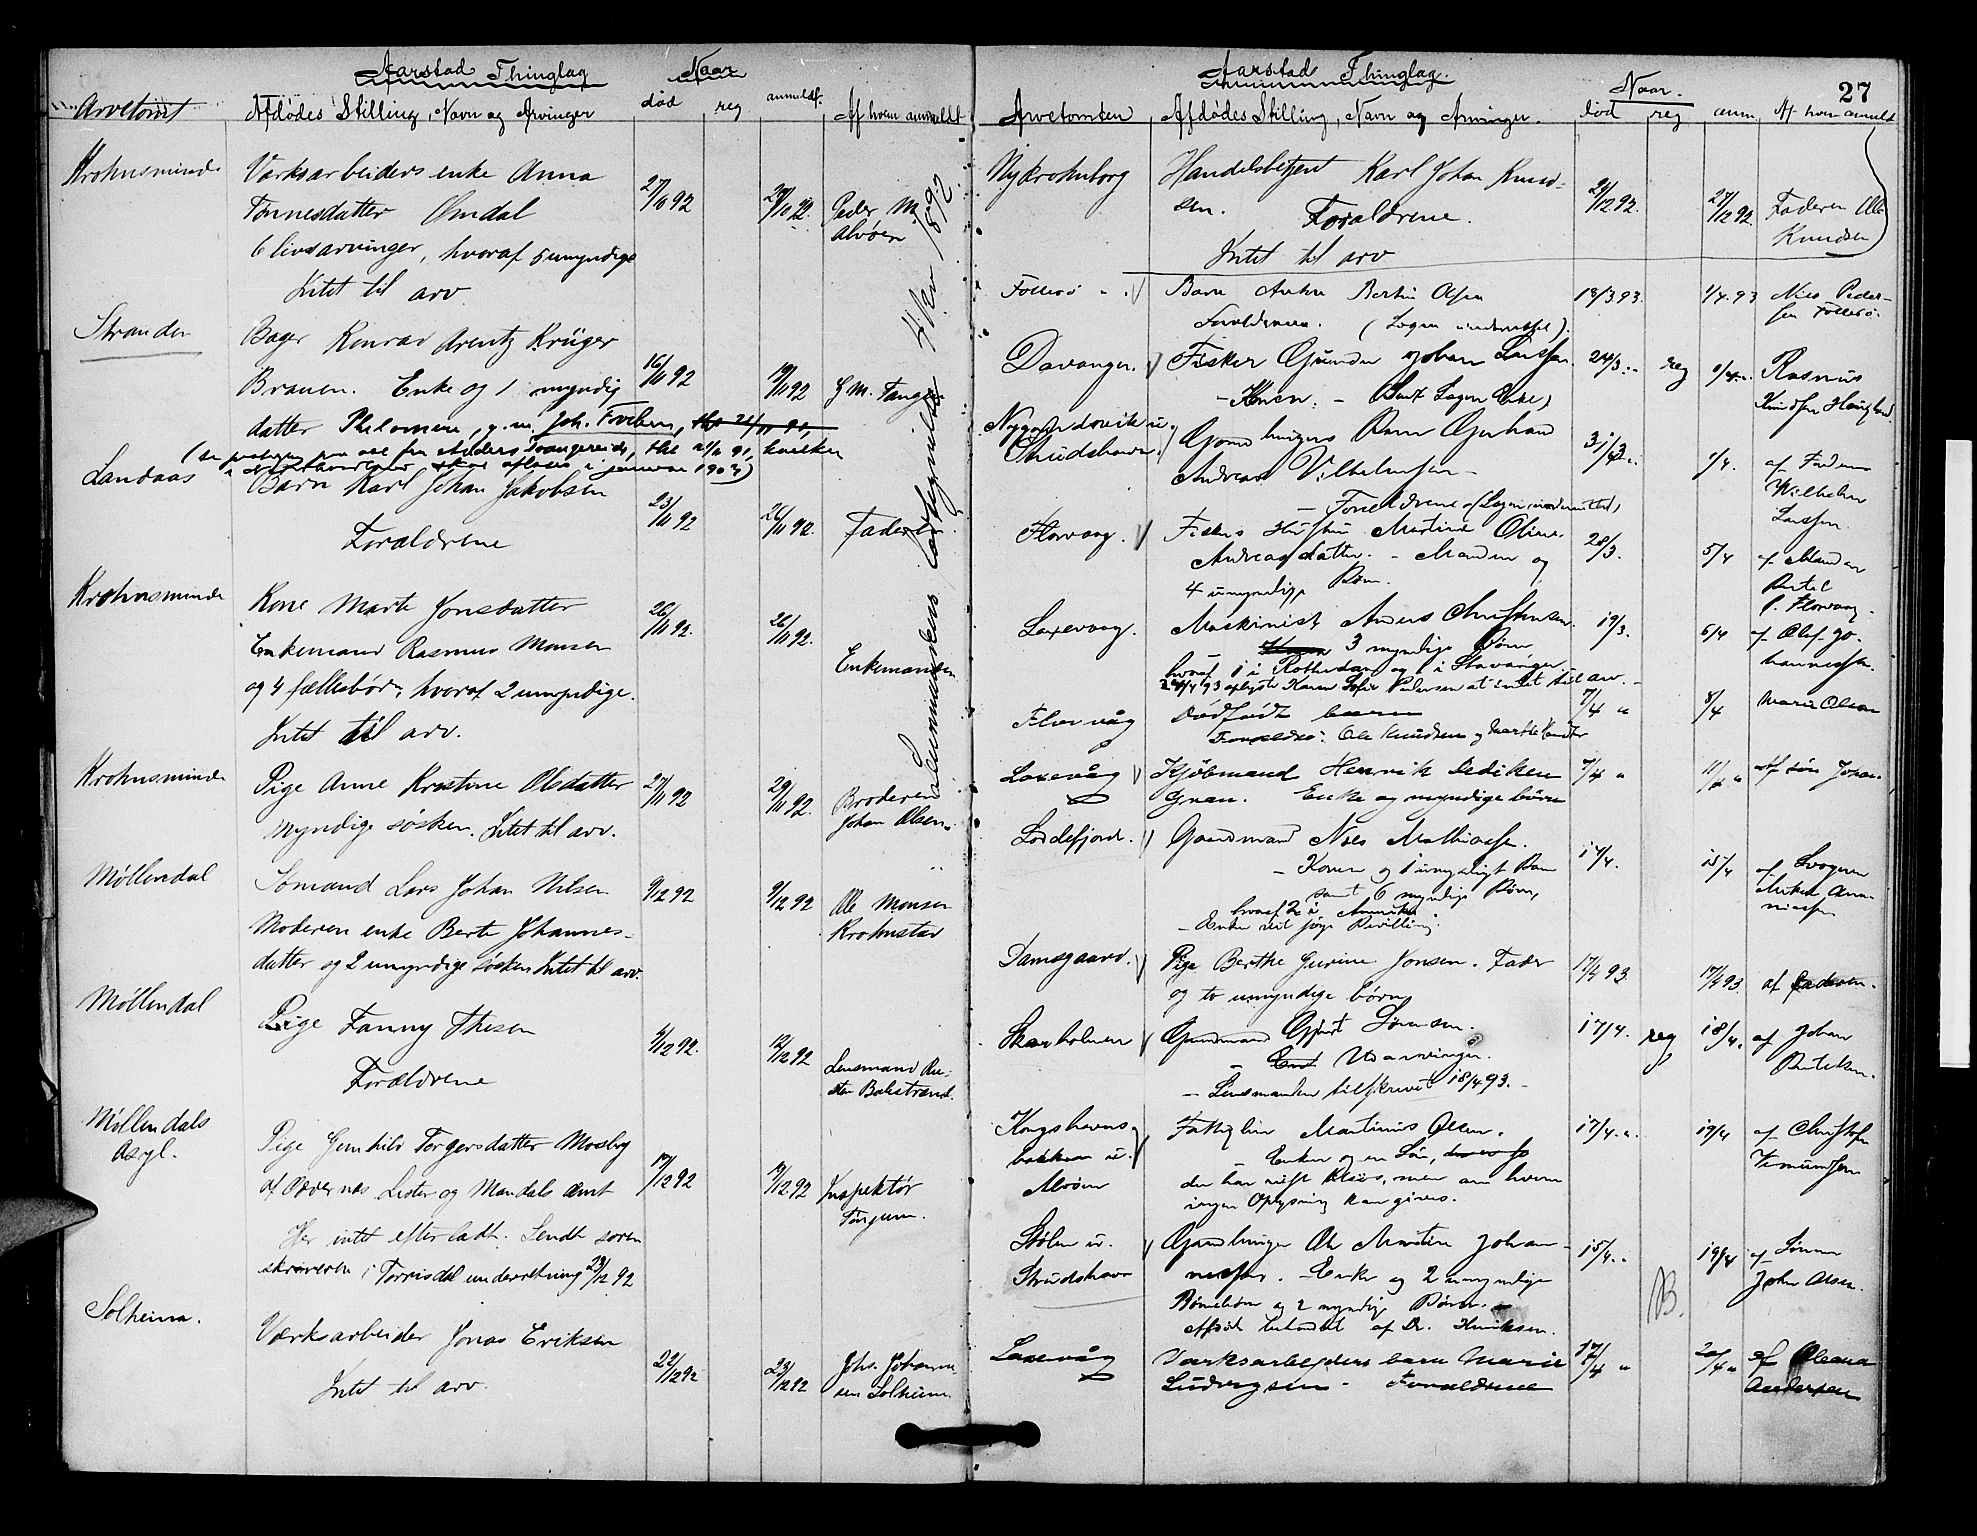 Aarstad Thinglag
Naar
Arvetomt
Afdødes Stilling, Navn og Arvinger
død
reg
anmeldt.
Af hvem anmeldt
Krohnsminde
Værksarbeiders enke Anna
Tønnesdatter Omdal
6 livsarvinger, hvoraf 5 umyndige
Intet til arv
27/10 92
29/10 92
Peder M.
Alvøen
Stranden
Bager Konrad Arentz Krüger
Brauen. Enke og 1 myndig
datter Philomene, g. m. Joh.
16/11 92
19/11 92
G M. Tange
Landaas
Barn Karl Johan Jakobsen
Forældrene
23/11 92
26/11 92.
Faderen
Krohnsminde
Kone Marte Jonsdatter
Enkemand Rasmus Monsen
og 4 fællesbørn, hvoraf 2 umyndige.
Intet til arv.
26/11 92.
26/11 92.
Enkemanden
Krohnsminde
Pige Anne Kristine Olsdatter
Myndige søsken. Intet til arv.
27/11 92
29/11 92.
Broderen
Johan Olsen.
Møllendal
Sømand Lars Johan Nilsen
Moderen enke Berte Johannes-
datter og 2 umyndige søsken Intet til arv.
9/12 92
9/12 92
Ole Monsen
Krohnstad
Møllendal
Pige Fanny Thesen
Forældrene
4/12 92.
12/12 92
Lensmand
Balestrand.
Møllendals
Asyl.
Pige Gunhild Torgersdatter Mosby
af Oddernes Lister og Mandals amt
Her intet efterladt. Sendt soren
skriveren i Torrisdal underretning 23/12 92
17/12 92
19/12 92
Inspektør
Solheim.
Værksarbeider Jonas Eriksen
Intet til arv.
22/12 92
23/12 92
Johs. Johanne
sen Solheim.
1892
Aarstad Thinglag.
27
Naar.
Arvetomten
Afdødes Stilling, Navn og Arvinger.
død
reg
anm.
Af hvem anmeldt
Nykrohnborg
Handelsbetjent Karl Johan Knud-
sen. Forældrene.
Intet til arv
21/12 92.
27/12 92.
Faderen Ole
Knudsen
Follesø
Barn
Bertin Olsen
Forældrene.
18/3 93.
1/4 93
Nils Peder-
sen Follesø.
Davanger.
Fisker
Johan Larssen.
24/3
reg
Rasmus
Knudsen Haugland
Andreas Vilhelmsen
31/3
1/4.
af Faderen
Wilhelm
Larssen.
Florvaag.
Fiskers Hustru Martine Oline
Andreasdatter. - Manden og
4 umyndige Børn.
28/3.
5/4
af Manden
Bertel
Florvaag
Laxevaag.
Maskinist Anders Christensen.
3 myndige Børn
hvoraf 1 i Rotterdam og 1 i Stavanger.
24/4 93 oplyste Karen Sofie Pedersen at intet til arv.
19/3.
6/4
af Olef Jo-
hannessen
Florvåg
Dødfødt barn
Forældre: Ole Knudsen og
7/4 "
8/4
Marie Olsen
Laxevåg
Kjøbmand Henrik Dediken
Gran. Enke og myndige børn
7/4 "
11/4 "
Af søn Johan
Loddefjord.
Gaardmand Nils Mathiassen.
- Konen og 1 umyndigt Barn
samt 6 myndige Børn,
hvoraf 2 i Amerika.
14/4.
15/4
af Svogeren
Mikal Ana-
niassen
Damsgaard.
Pige Berthe Gurine Jonsen. Fader
og to umyndige børn
17/4 93.
17/4 93.
af faderen.
Skarholmen
Sørensen.
Udarvinger.
- Lensmanden tilskrevet 18/4 93. -
17/4.
reg
18/4.
af Johan
Bertelsen.
Kongshavns
bakken u.
Alvøen
Fattiglem Martinus Olsen.
- Enke og en Søn,
der har reist til Søs, men om hvem
ingen Oplysning kan gives.
17/4.
19/4
af Christofer
Stølen u.
Strudshavn
Ole Martin Johan-
nessen. - Enke og 2 umyndige
og 2 myndige Børn. -
af Dr. Henriksen.
15/4
B.
19/4
af Sønnen
John Olsen.
Laxevåg
Værksarbejders barn Marie
Ludvigsen. Forældrene
17/4 "
20/4 "
af Oleana
Andersen